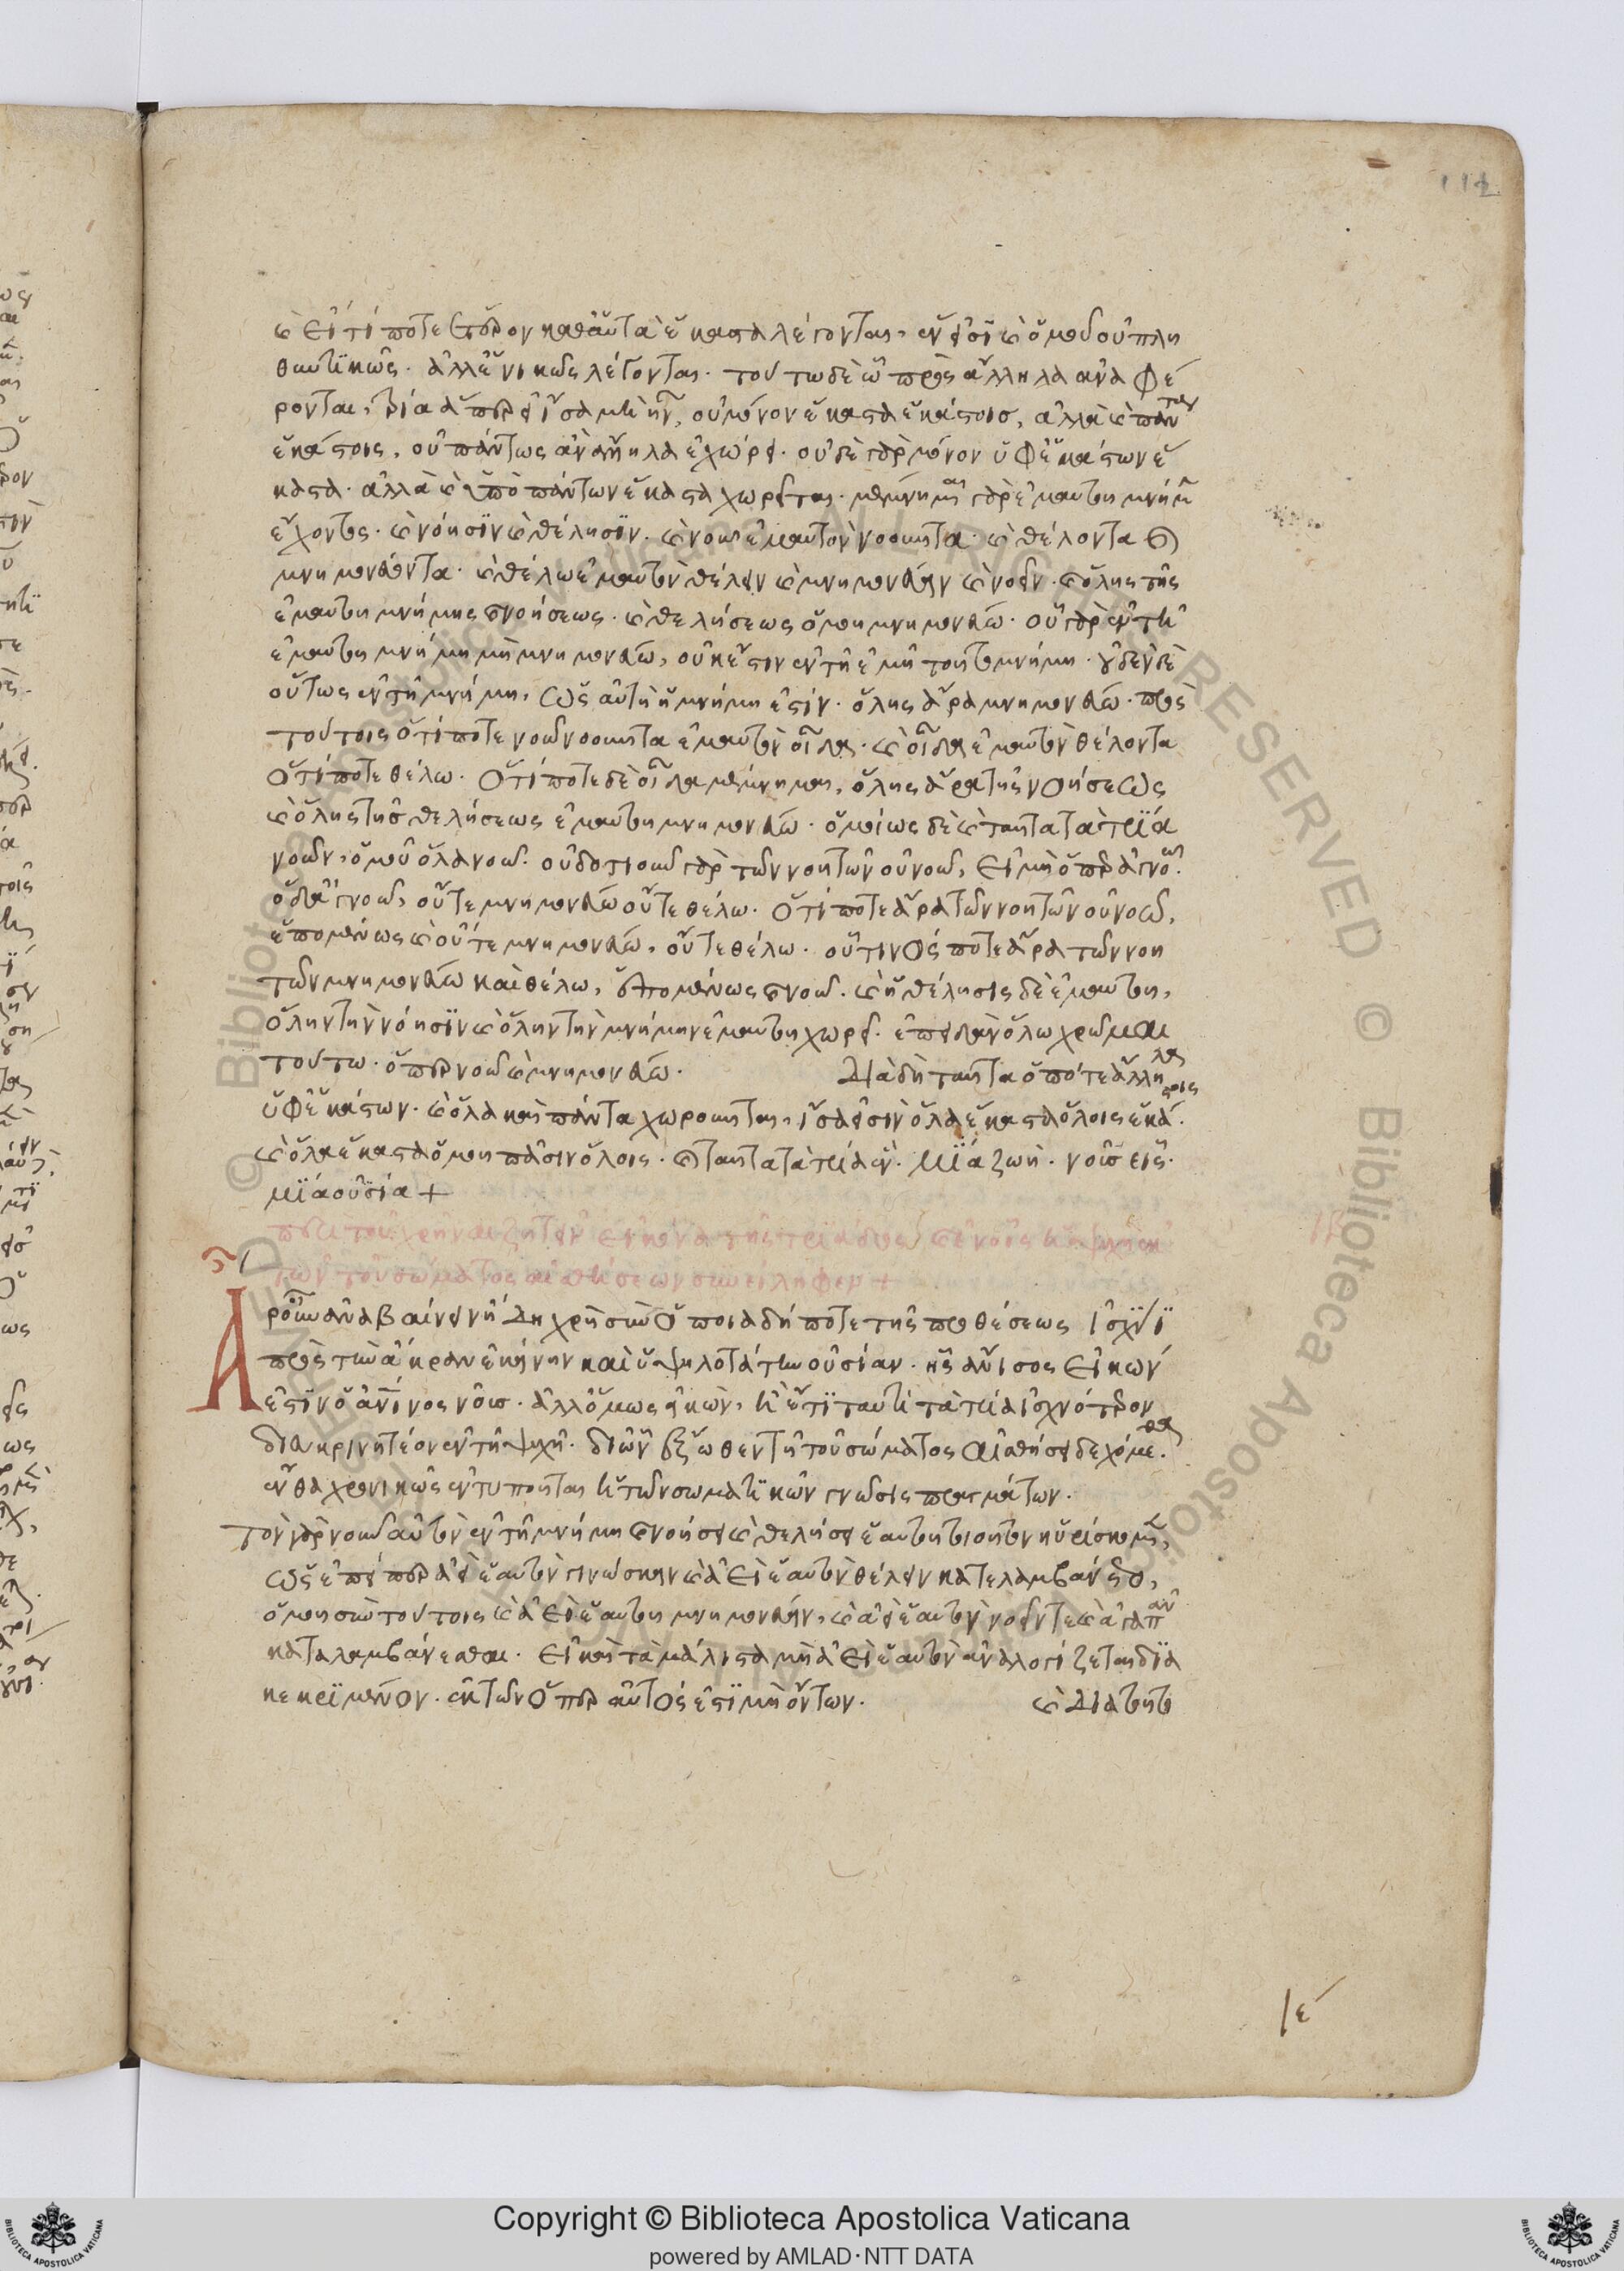 114
καὶ εἴ τί ποτε ἕτερον καθ' αὑτὰ ἕκαστα λέγονται, ἐν ἐμοὶ καὶ ὁμοῦ οὐ πλη
θυντικῶς. ἀλλ' ἑνικῶς λέγονται. τούτω δὲ ᾧ πρὸς ἄλληλα ἀναφέ
ρονται, τρία ἅπερ εἰ ἴσα μὴ ἦν, οὐ μόνον ἕκαστα ἑκάστοις, ἀλλὰ καὶ πάντα
ἑκάστοις, οὐ πάντως ἂν ἄλληλα ἐχώρει. οὐδὲ γὰρ μόνον ὑφ' ἑκάστων ἕ
καστα. ἀλλὰ καὶ ὑπὸ πάντων ἕκαστα χωρεῖται. μέμνημαι γὰρ ἐμαυτοῦ μνήμην
ἔχοντος. καὶ νόησιν καὶ θέλησιν. καὶ νοῶ ἐμαυτὸν νοοῦντα. καὶ θέλοντα καὶ
μνημονεύοντα. καὶ θέλω ἐμαυτὸν θέλειν καὶ μνημονεύειν καὶ νοεῖν. καὶ ὅλης τῆς
ἐμαυτοῦ μνήμης καὶ νοήσεως. καὶ θελήσεως ὁμοῦ μνημονεύω. οὗ γὰρ ἐν τῇ
ἐμαυτοῦ μνήμη μὴ μνημονεύω, οὐκ ἔστιν ἐν τῇ ἐμῇ τοῦτο μνήμη. οὐδὲν δὲ
οὕτως ἐν τῇ μνήμη, ὡς αὐτὴ ἡ μνήμη ἐστίν. ὅλης ἄρα μνημονεύω. πρὸς
τούτοις ὅ τί ποτε νοῶ νοοῦντα ἐμαυτὸν οἶδα. καὶ οἶδα ἐμαυτὸν θέλοντα
ὅ τί ποτε θέλω. ὅ τί ποτε δὲ οἶδα μέμνημαι, ὅλης ἄρα τῆς νοήσεως
καὶ ὅλης τῆς θελήσεως ἐμαυτοῦ μνημονεύω. ὁμοίως δὲ καὶ ταῦτα τὰ τρία
νοῶν, ὁμοῦ ὅλα νοῶ. οὐδ' ὁτιοῦν γὰρ τῶν νοητῶν οὐ νοῶ, εἰ μὴ ὅπερ ἀγνοῶ.
ὃ δ' ἀγνοῶ, οὔτε μνημονεύω οὔτε θέλω. ὅ τί ποτε ἄρα τῶν νοητῶν οὐ νοῶ,
ἑπομένως καὶ οὔτε μνημονεύω, οὔτε θέλω. οὗτινός ποτε ἄρα τῶν νοη
τῶν μνημονεύω καὶ θέλω, ἑπομένως καὶ νοῶ. καὶ ἡ θέλησις δὲ ἐμαυτοῦ,
ὅλην τὴν νόησιν καὶ ὅλην τὴν μνήμην ἐμαυτοῦ χωρεῖ. ἐπειδὰν ὅλω χρῶμαι
τούτω. ὅπερ νοῶ καὶ μνημονεύω. Διὰ δὴ ταῦτα ὁπότε ἄλληλα
ὑφ' ἑκάστων. καὶ ὅλα καὶ πάντα χωροῦνται, ἴσα εἰσὶν ὅλα ἕκαστα ὅλοις ἑκάστοις.
καὶ ὅλα ἕκαστα ὁμοῦ πᾶσιν ὅλοις. καὶ ταῦτα τὰ τρία ἕν. μία ζωὴ. νοῦς εἷς.
μία οὐσία +
τῶν τοῦ σώματος αἰσθήσεων συνείληφεν +
Ἆρ' οὖν ἀναβαίνειν ἤδη χρὴ σὺν ὁποιαδήποτε τῆς προθέσεως ἰσχύϊ
πρὸς τὴν ἄκραν ἐκείνην καὶ ὑψηλοτάτην οὐσίαν. ἧς ἄνισος εἰκών
ἐστιν ὁ ἀνθρώπινος νοῦς. ἀλλ' ὅμως εἰκὼν, ἢ ἔτι ταυτὶ τὰ τρία ἰσχνότερον
διακρινητέον ἐν τῇ ψυχῇ. δι' ὧν ἔξωθεν τῇ τοῦ σώματος αἰσθήσει δεχόμεθα.
ἔνθα χρονικῶς ἐντυποῦται ἡ τῶν σωματικῶν γνῶσις πραγμάτων.
Τὸν γὰρ νοῦν αὐτὸν ἐν τῇ μνήμη καὶ νοήσει καὶ θελήσει ἑαυτοῦ τοιοῦτον ηὑρίσκομεν,
ὡς ἐπείπερ ἀεὶ ἑαυτὸν γινώσκειν καὶ ἀεὶ ἑαυτὸν θέλειν κατελαμβάνετο,
ὁμοῦ σὺν τούτοις καὶ ἀεὶ ἑαυτοῦ μνημονεύειν, καὶ ἀεὶ ἑαυτὸν νοεῖν τε καὶ ἀγαπᾶν
καταλαμβάνεσθαι. εἰ καὶ τὰ μάλιστα μὴ ἀεὶ ἑαυτὸν ἀναλογίζεται δια
κεκριμένον. ἐκ τῶν ὅπερ αὐτός ἐστι μὴ ὄντων. καὶ διὰ τοῦτο
ιε